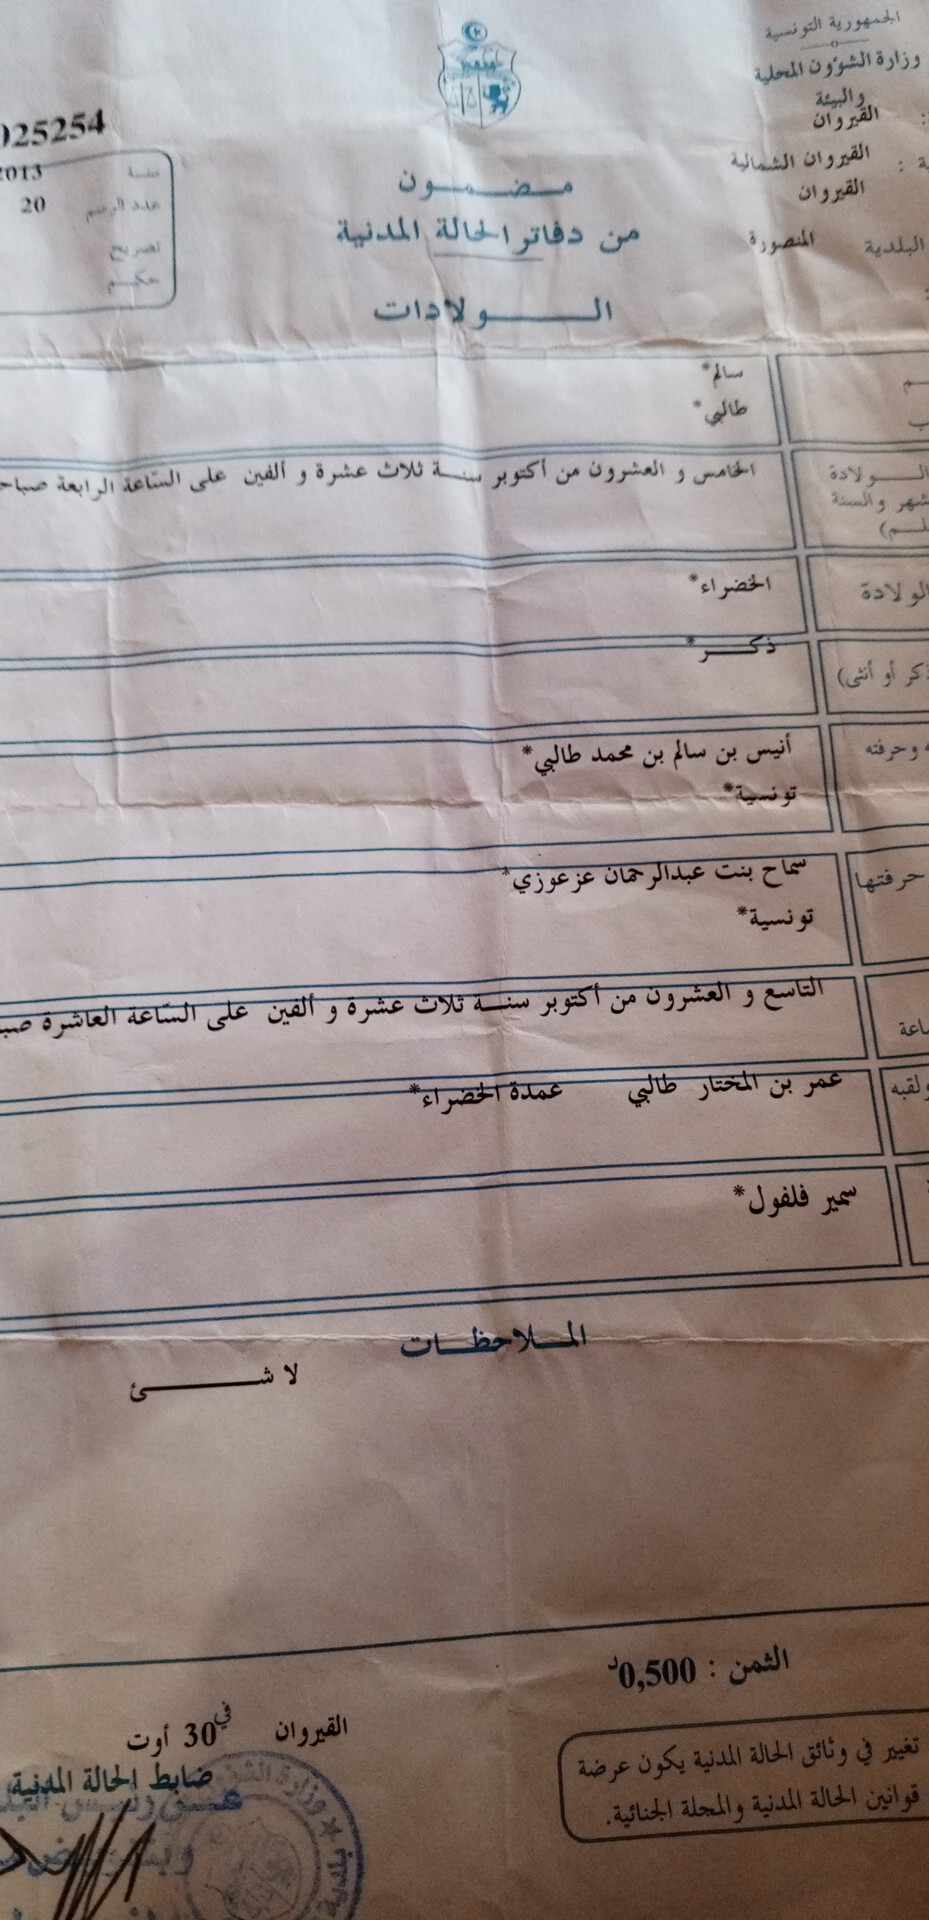 الجمهورية التونسية
وزارة الشؤون المحلية
والبيئة
القيروان
القيروان الشمالية
القيروان
البلدية المنصورة
025254
سنة 2013
عدد الرسم 20
تصريح
حكم
مضمون
من دفاتر الحالة المدنية
الولادات
سالم*
طالبي*
الولادة
شهر والسنة
الخامس و العشرون من أكتوبر سنة ثلاث عشرة و ألفين على السّاعة الرابعة صباح
الولادة الخضراء*
ذكر*
ذكر أو أنثى)
وحرفته أنيس بن سالم بن محمد طالبي*
تونسية*
حرفتها سماح بنت عبدالرحمان عزعوزي*
تونسية*
التاسع و العشرون من أكتوبر سنة ثلاث عشرة و ألفين على السّاعة العاشرة صبا
ولقبه عمر بن المختار طالبي عمدة الخضراء*
سمير فلفول*
الملاحظات
لا شئ
الثمن : 0,500د
القيروان في 30 أوت
ضابط الحالة المدنية
تغيير في وثائق الحالة المدنية يكون عرضة
قوانين الحالة المدنية والمجلة الجنائية.